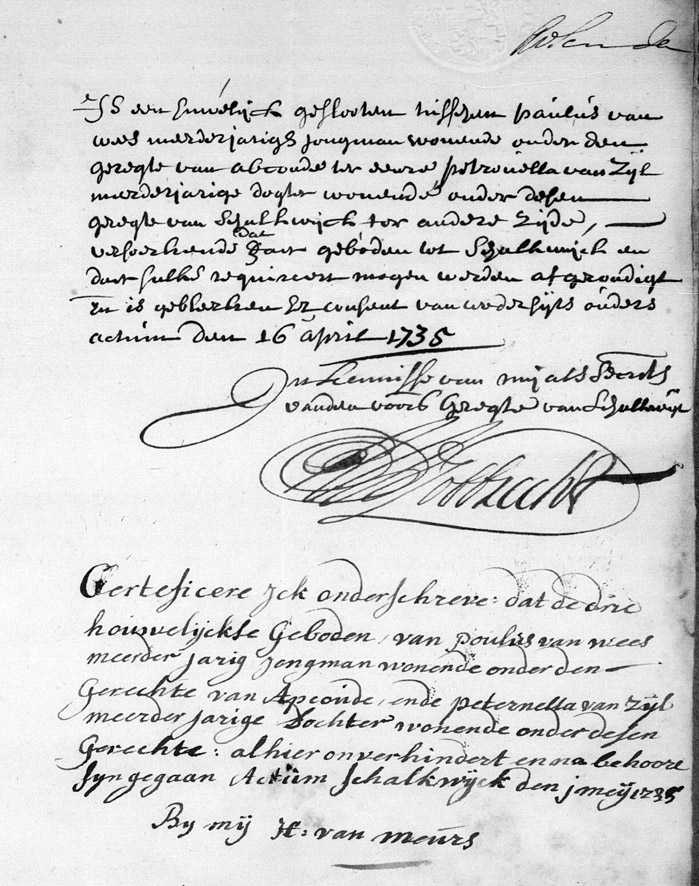 Is een huwelijck geslooten tussen paulus van
wees meerderjarigh jongman wonende onder den
geregte van abcoude ter eenre petronella van Zijl
meerderjarige dogter wonende onder desen
geregte van Schalkwijck ter andere zijde,
versoekende dat haar geboden tot Schalkwijck en
daar sulks requireert mogen werden afgecondigt
En is gebleeken Er consent van wedersijts ouders
actum den 16 april 1735
In kennisse van mij als
vanden voors Geregte van Schalkwijk
Certeficere Jck onderschreve: dat de drie
houwelijckse Geboden, van poulus van wees
meerder jarig Jongman wonende onder den
Gerechte van Apcoude, ende peternella van Zijl
meerder jarige Dochter wonende onder desen
Gerechte: alhier onverhindert en na behoore
syn gegaan Actum Schalkwyck den j meij 1735
By mij H: van Meurs